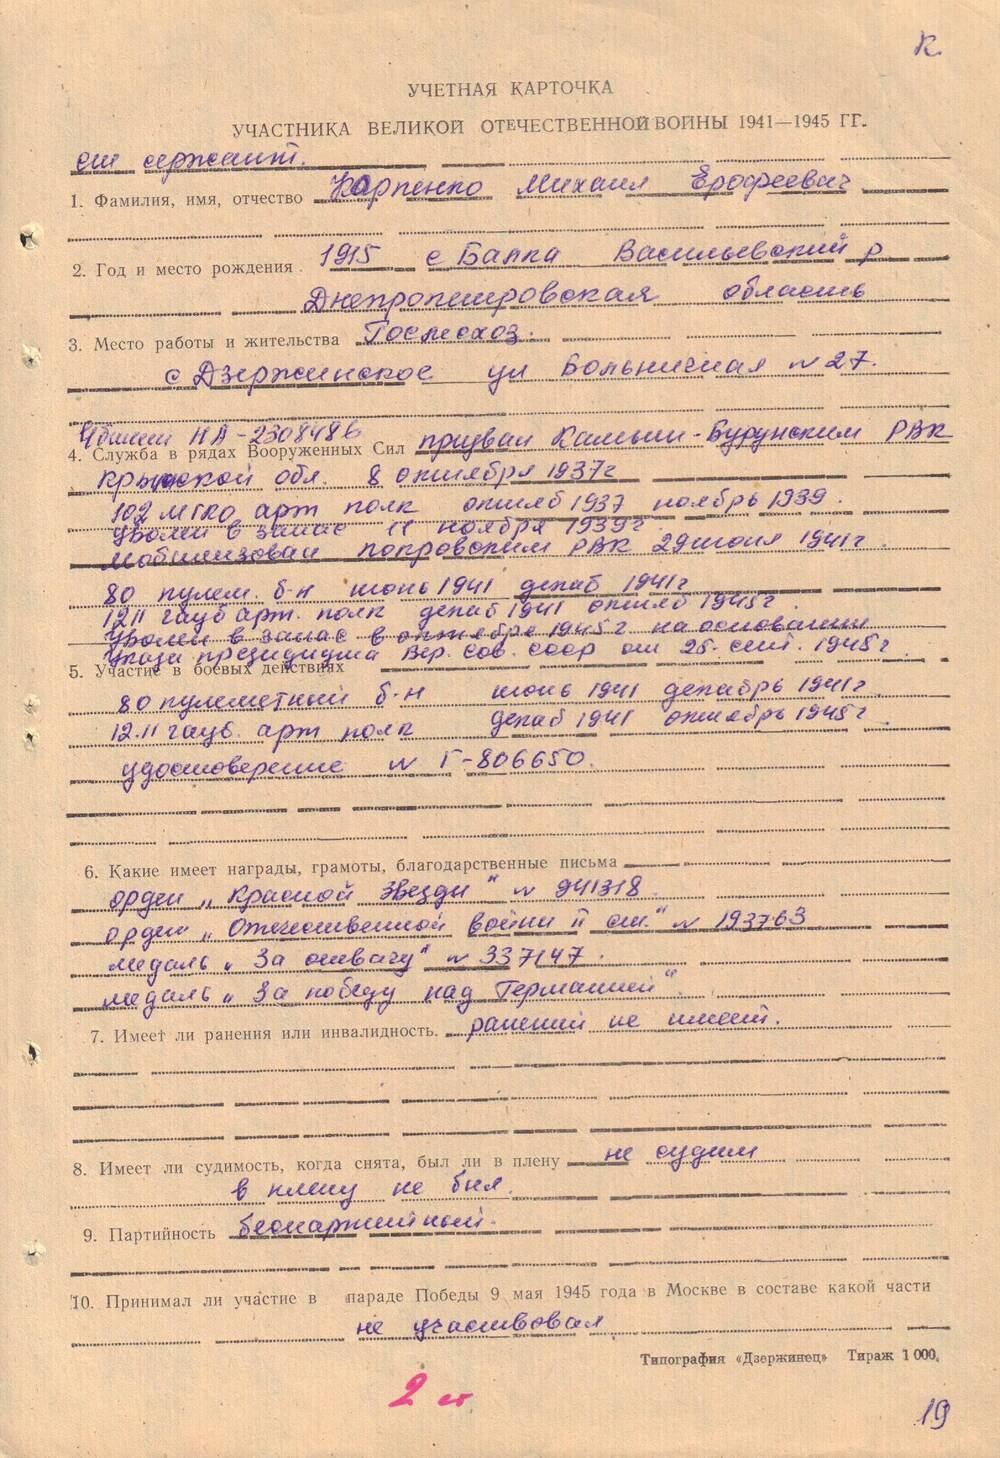 К
УЧЕТНАЯ КАРТОЧКА
УЧАСТНИКА ВЕЛИКОЙ ОТЕЧЕСТВЕННОЙ ВОЙНЫ 1941—1945 ГГ.
ст сержант.
1. Фамилия, имя, отчество Карпенко Михаил Ерофеевич
2. Год и место рождения 1915 с Балка Васильевский р
Днепропетровская область
3. Место работы и жительства Гослесхоз.
с Дзержинское ул Больничная N 27.
Чбилет НА-2308486
4. Служба в рядах Вооруженных Сил призван Камыш-Бурунским РВК
Крымской обл. 8 октября 1937г
102 МГКО арт полк октяб 1937 ноябрь 1939.
Уволен в запас 11 ноября 1939г.
Мобилизован покровским РВК 29 июня 1941г.
80 пулем. б-н июнь 1941 декаб 1941г
1211 гауб арт. полк декаб 1941 октяб 1945г.
Уволен в запас в октябре 1945г на основании
Указа президиума Вер. Сов. СССР от 25. сент. 1945г.
5. Участие в боевых действиях
80 пулеметный б-н июнь 1941 декабрь 1941г.
12.11 гауб. арт полк декаб 1941 октябрь 1945г
удостоверение N Г-806650.
6. Какие имеет награды, грамоты, благодарственные письма
орден „Красной Звезды" N 941318.
орден „Отечественной войны II ст." N 193763
медаль „За отвагу" N 337147.
медаль „За победу над Германией".
7. Имеет ли ранения или инвалидность. ранений не имеет.
8. Имеет ли судимость, когда снята, был ли в плену не судим
в плену не был.
9. Партийность беспартийный.
10. Принимал ли участие в параде Победы 9 мая 1945 года в Москве в составе какой части
не участвовал
Типография «Дзержинец» Тираж 1 000.
2 ст
19